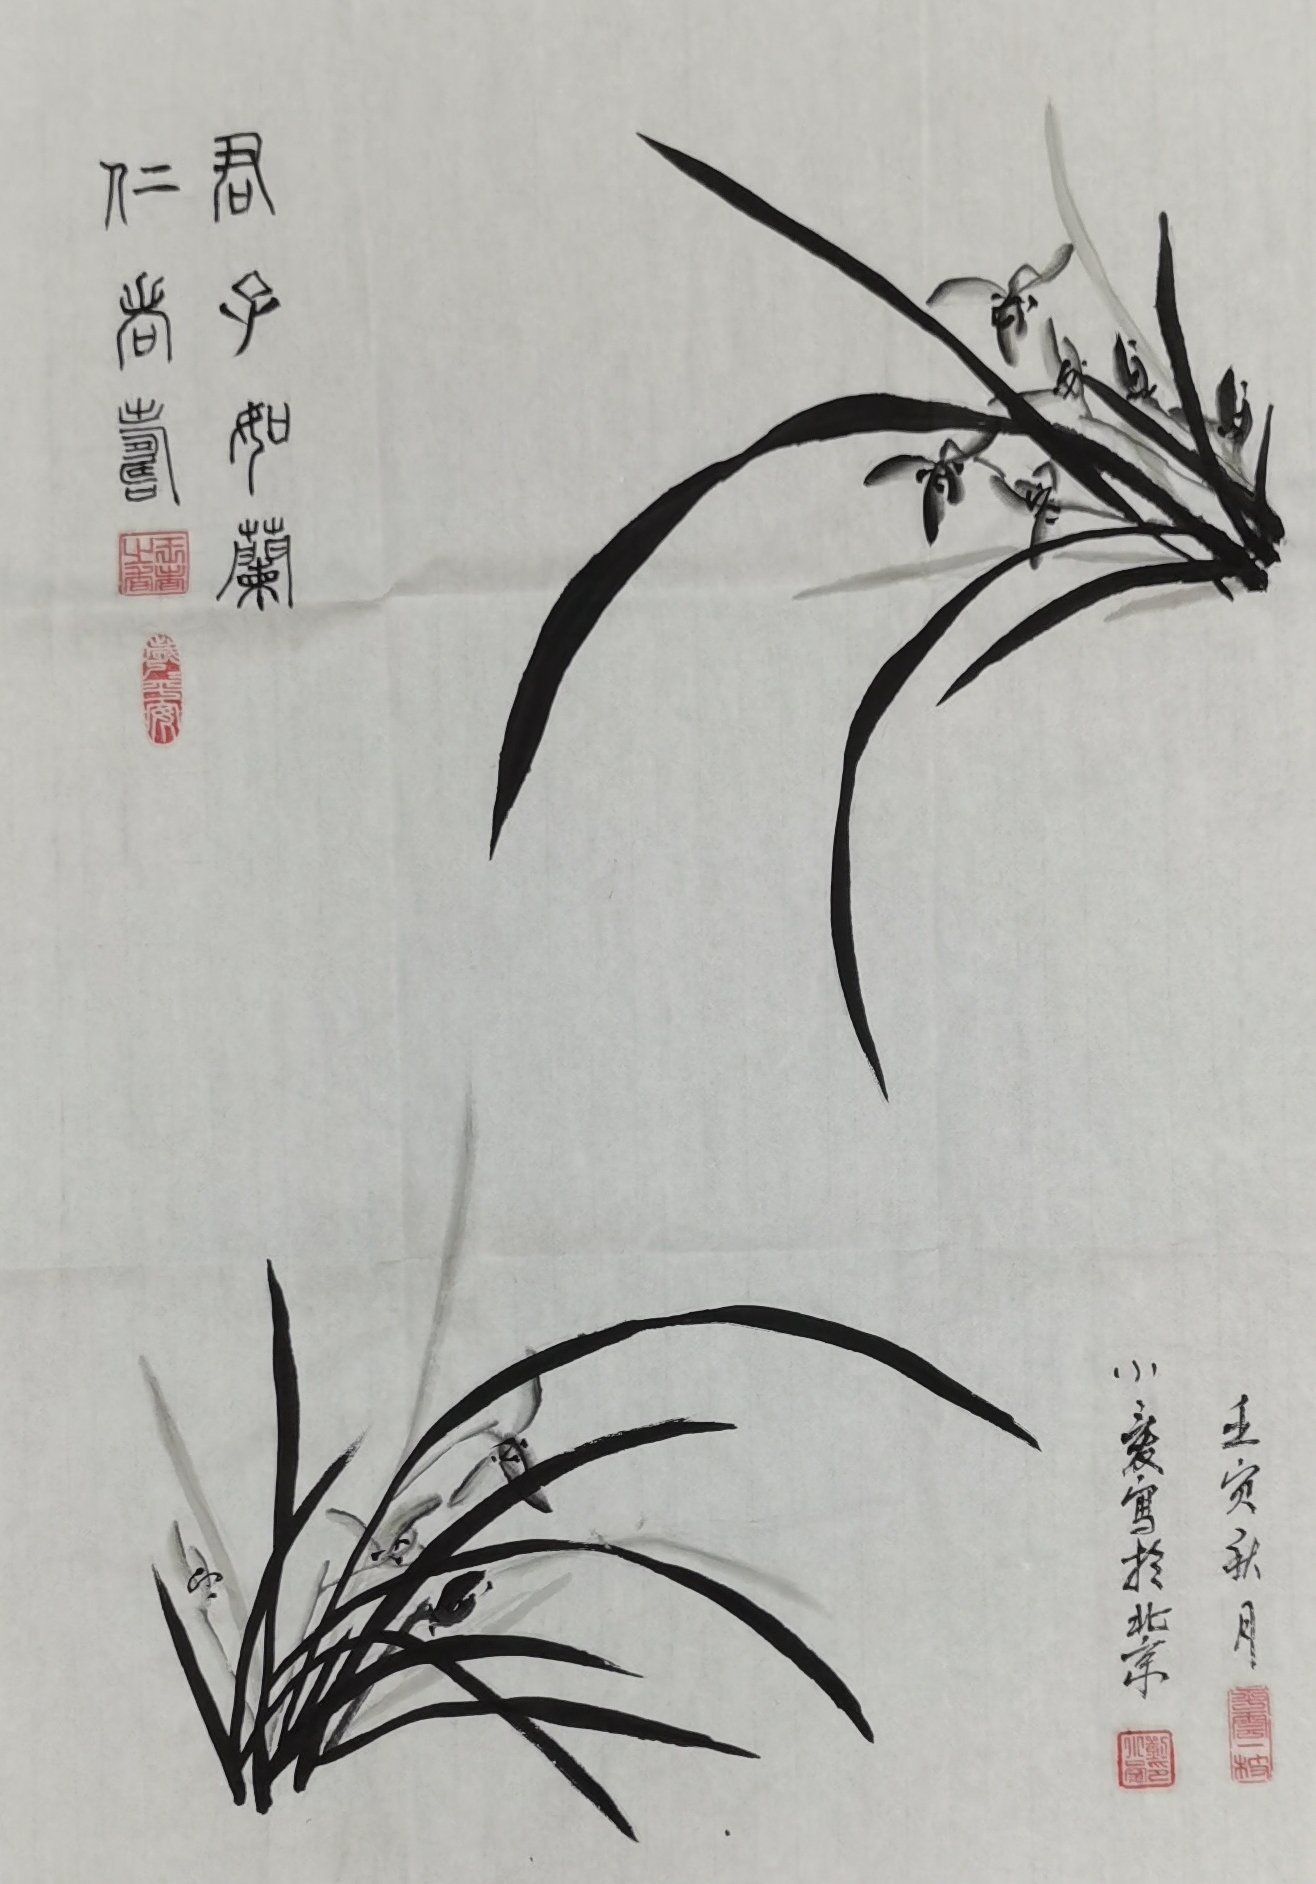 君子如蘭
仁者壽
壬寅秋月
小夌寫於北京